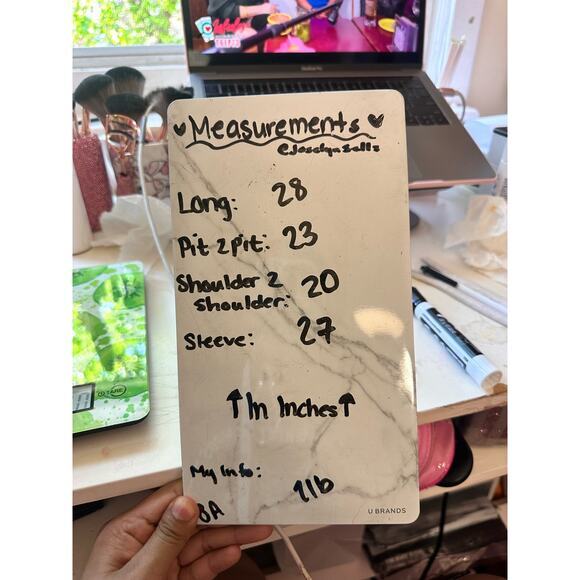 Measurements
@Joselynsells
Long: 28
Pit 2 Pit: 23
Shoulder 2
Shoulder: 20
Sleeve: 27
↑In Inches↑
My Info:
BA 1lb
U BRANDS
MacBook Pro
TARE